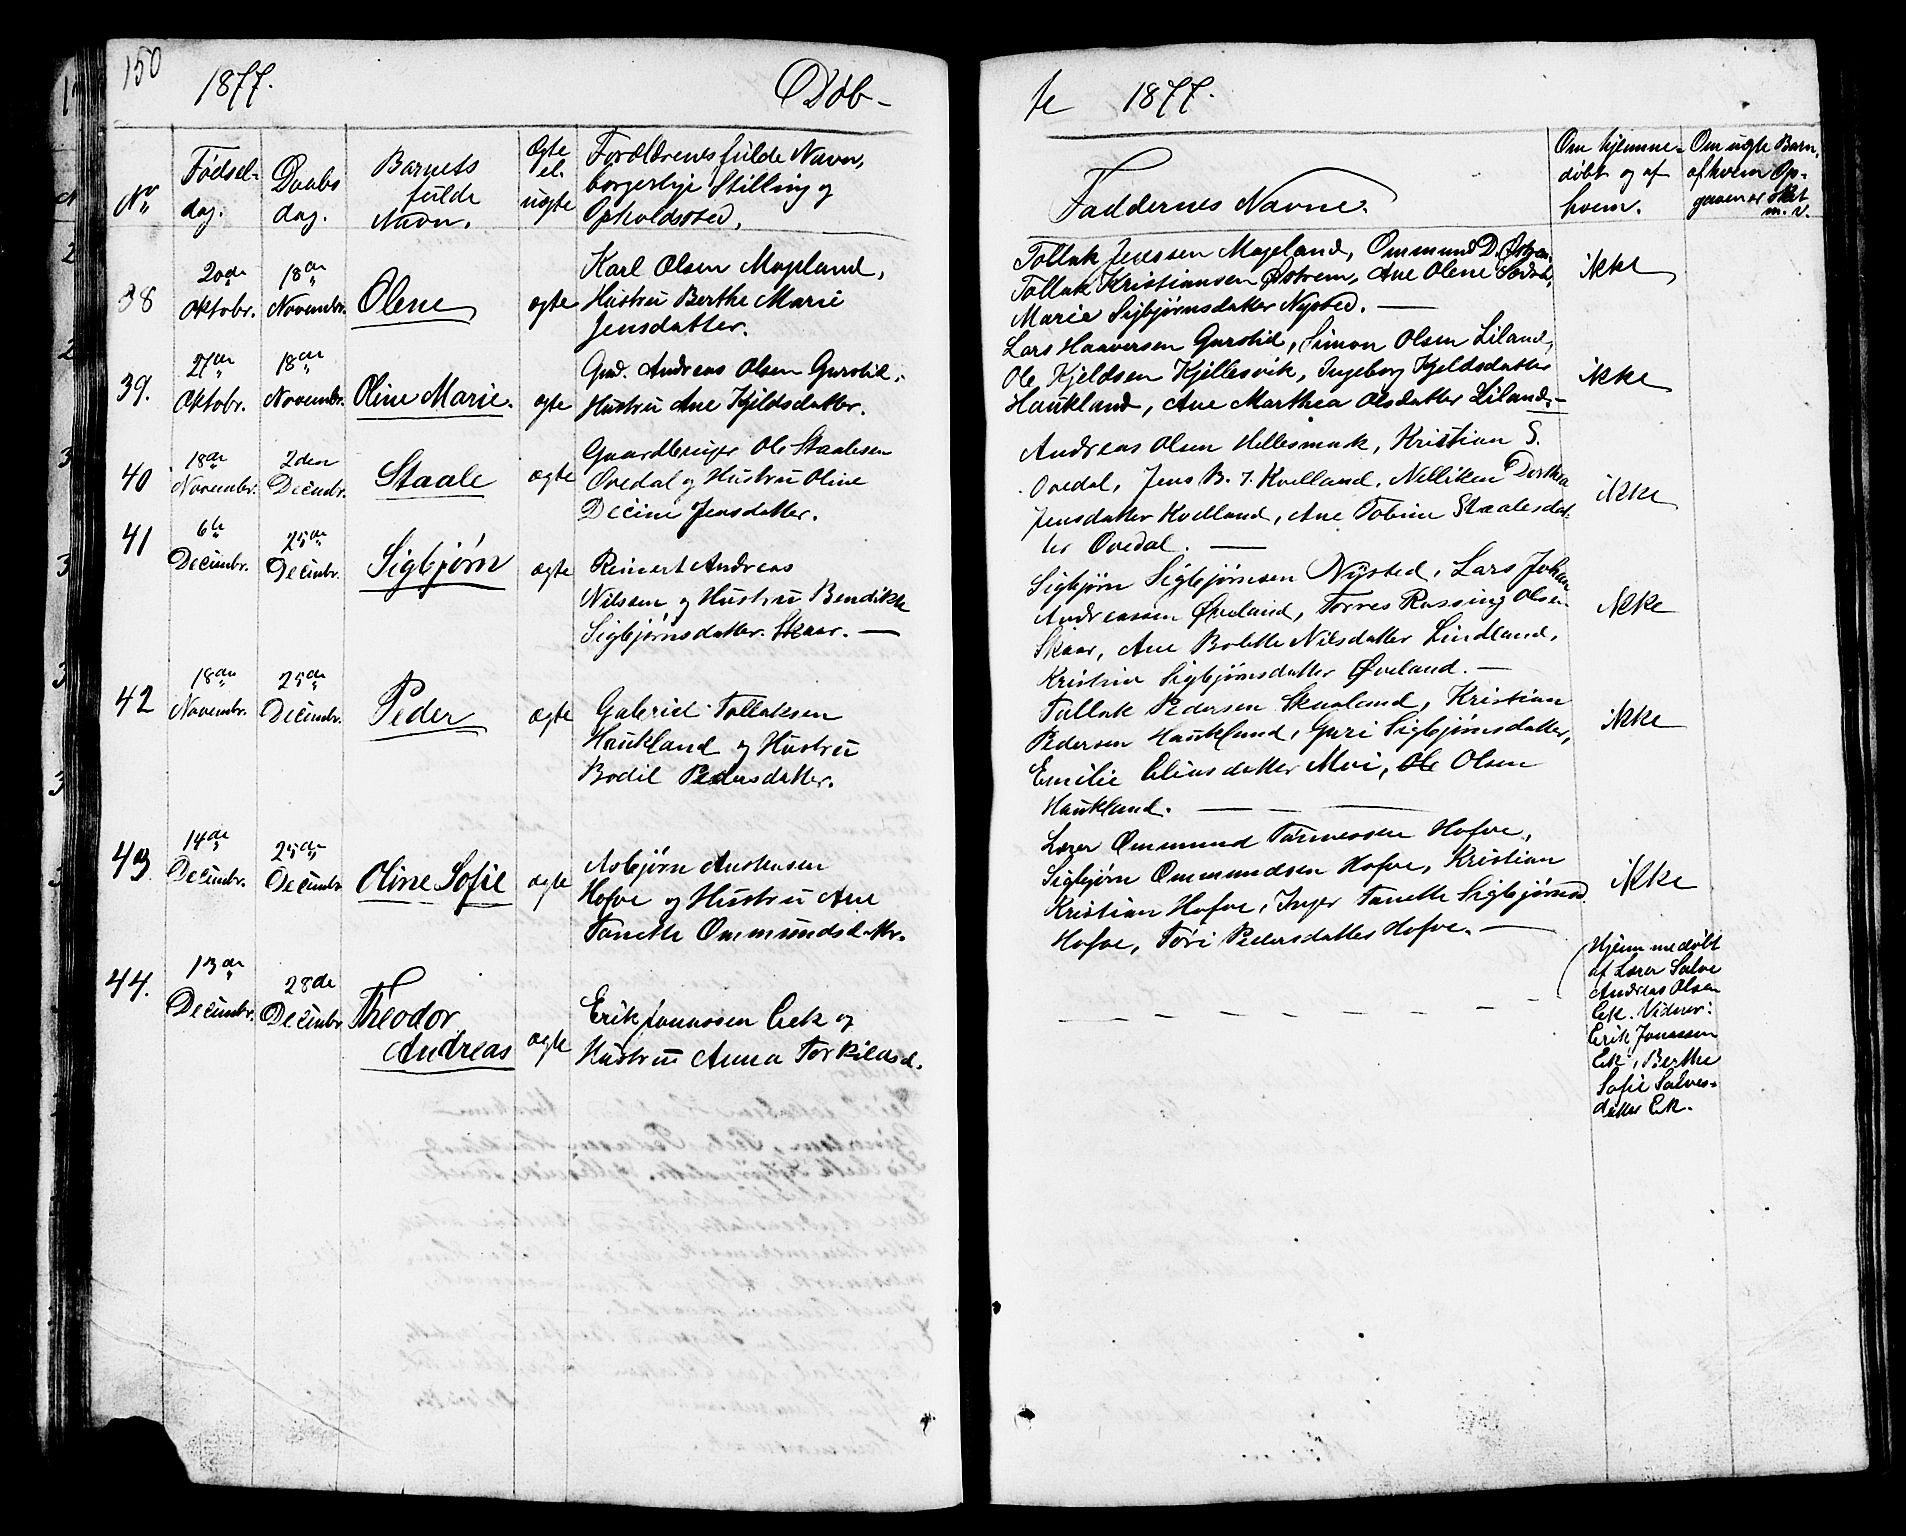 150
1877.
Døb-
te 1877.
No
Fødsel-
dag.
Daabs
dag.
Barnets
fulde
Navn.
Ægte
el.
uægte
Forældrenes fulde Navn,
borgerlige Stilling og
Opholdssted.
Faddernes Navne.
Om hjemme-
døbt og af
hvem.
Om uægte Barn,
af hvem Op-
gaven er sket
m. v.
38
20de
Oktobr.
18de
Novembr.
Olene
ægte
Karl Olsen Mageland,
Hustru Berthe Marie
Jensdatter.
Tollak Jenssen Mageland, Ommund D.
Tollak Kristiansen Østrem, Ane Olene
Marie Sigbjørnsdatter Nysted. —
ikke
39.
27de
Oktobr.
18de
Novembr.
Oline Marie.
ægte
Gmd. Andreas Olsen Gursli,
Hustru Ane Kjeldsdatter.
Lars Haaversen Gursli, Simon Olsen Liland,
Ole Kjeldsen Kjellesvik, Ingeborg Kjeldsdatter
Haukland, Ane Marthea Olsdatter Liland. —
ikke
40
18de
Novembr.
2den
Decembr.
Staale
ægte
Gaardbruger Ole Staalesen
Ovedal og Hustru Oline
Decine Jensdatter.
Andreas Olsen Hellesmark, Kristian S.
Ovedal, Jens B. J. Kvelland, Nelliken Dorthea
Jensdatter Kvelland, Ane Tobine Staalesdat-
ter Ovedal. —
ikke
41
6te
Decembr.
25de
Decembr.
Sigbjørn
ægte
Reinert Andreas
Nilssen og Hustru Bendikke
Sigbjørnsdatter Skaar. —
Sigbjørn Sigbjørnsen Nysted, Lars Johan
Andreassen Øveland, Torres Rassing Olsen
Skaar, Ane Bolette Nilsdatter Lindland,
Kristine Sigbjørnsdatter Øveland. —
ikke
42
18de
Novembr.
25de
Decembr.
Peder
ægte
Gabriel Tollaksen
Haukland og Hustru
Bodil Pedersdatter.
Tallak Pedersen Skaaland, Kristian
Pedersen Haukland, Guri Sigbjørnsdatter,
Emilie Eliasdatter Moi, Ole Olsen
Haukland. —
ikke
43
14de
Decembr.
25de
Decembr.
Oline Sofie
ægte
Asbjørn Austensen
Hofve og Hustru Ane
Tonette Ommundsdattr.
Lærer Ommund Tørressen Hofve,
Sigbjørn Ommundsen Hofve, Kristian
Kristian Hofve, Inger Tonette Sigbjørnsd.
Hofve, Tøri Pedersdatter Hofve. —
ikke
44.
13de
Decembr.
28de
Decembr.
Theodor
Andreas
ægte
Erik Jonassen Eek og
Hustru Anna Torkildsd.
Hjemmedøbt
af Lærer Salve
Andreas Olsen
Eek. Vidner:
Erik Jonassen
Eek, Berthe
Sofie Salves-
datter Eek.